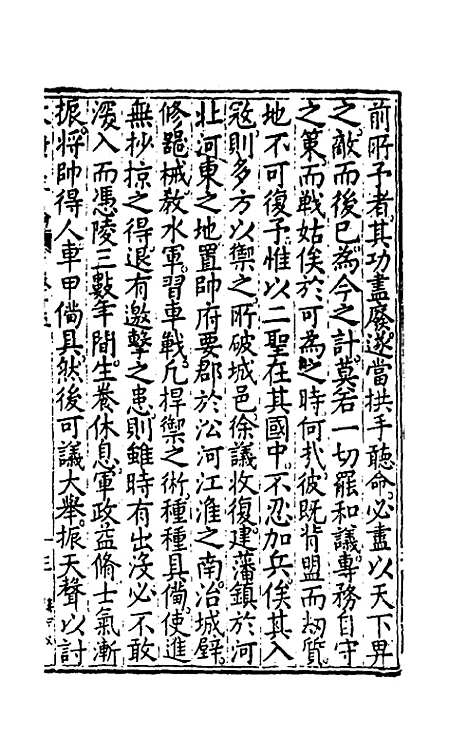 前所予者其功盡廢遂當拱手聽命必盡以天下畀
之敵而後已為今之計莫若一切罷和議專務自守
之策而戰姑俟於可為之時何㢤彼既背盟而刼質
地不可復予惟以二聖在其國中不忍加兵俟其入
宼則多方以禦之所破城邑徐議收復建藩鎮於河
北河東之地置帥府要郡於沿河江淮之南冶城壁
修噐械教水軍習車戰凢捍禦之術種種具俻使進
無抄掠之得退有邀擊之患則雖時有出沒必不敢
深入而憑陵三數年間生養休息軍政益脩士氣漸
振將帥得人車甲俻具然後可議大舉振天聲以討